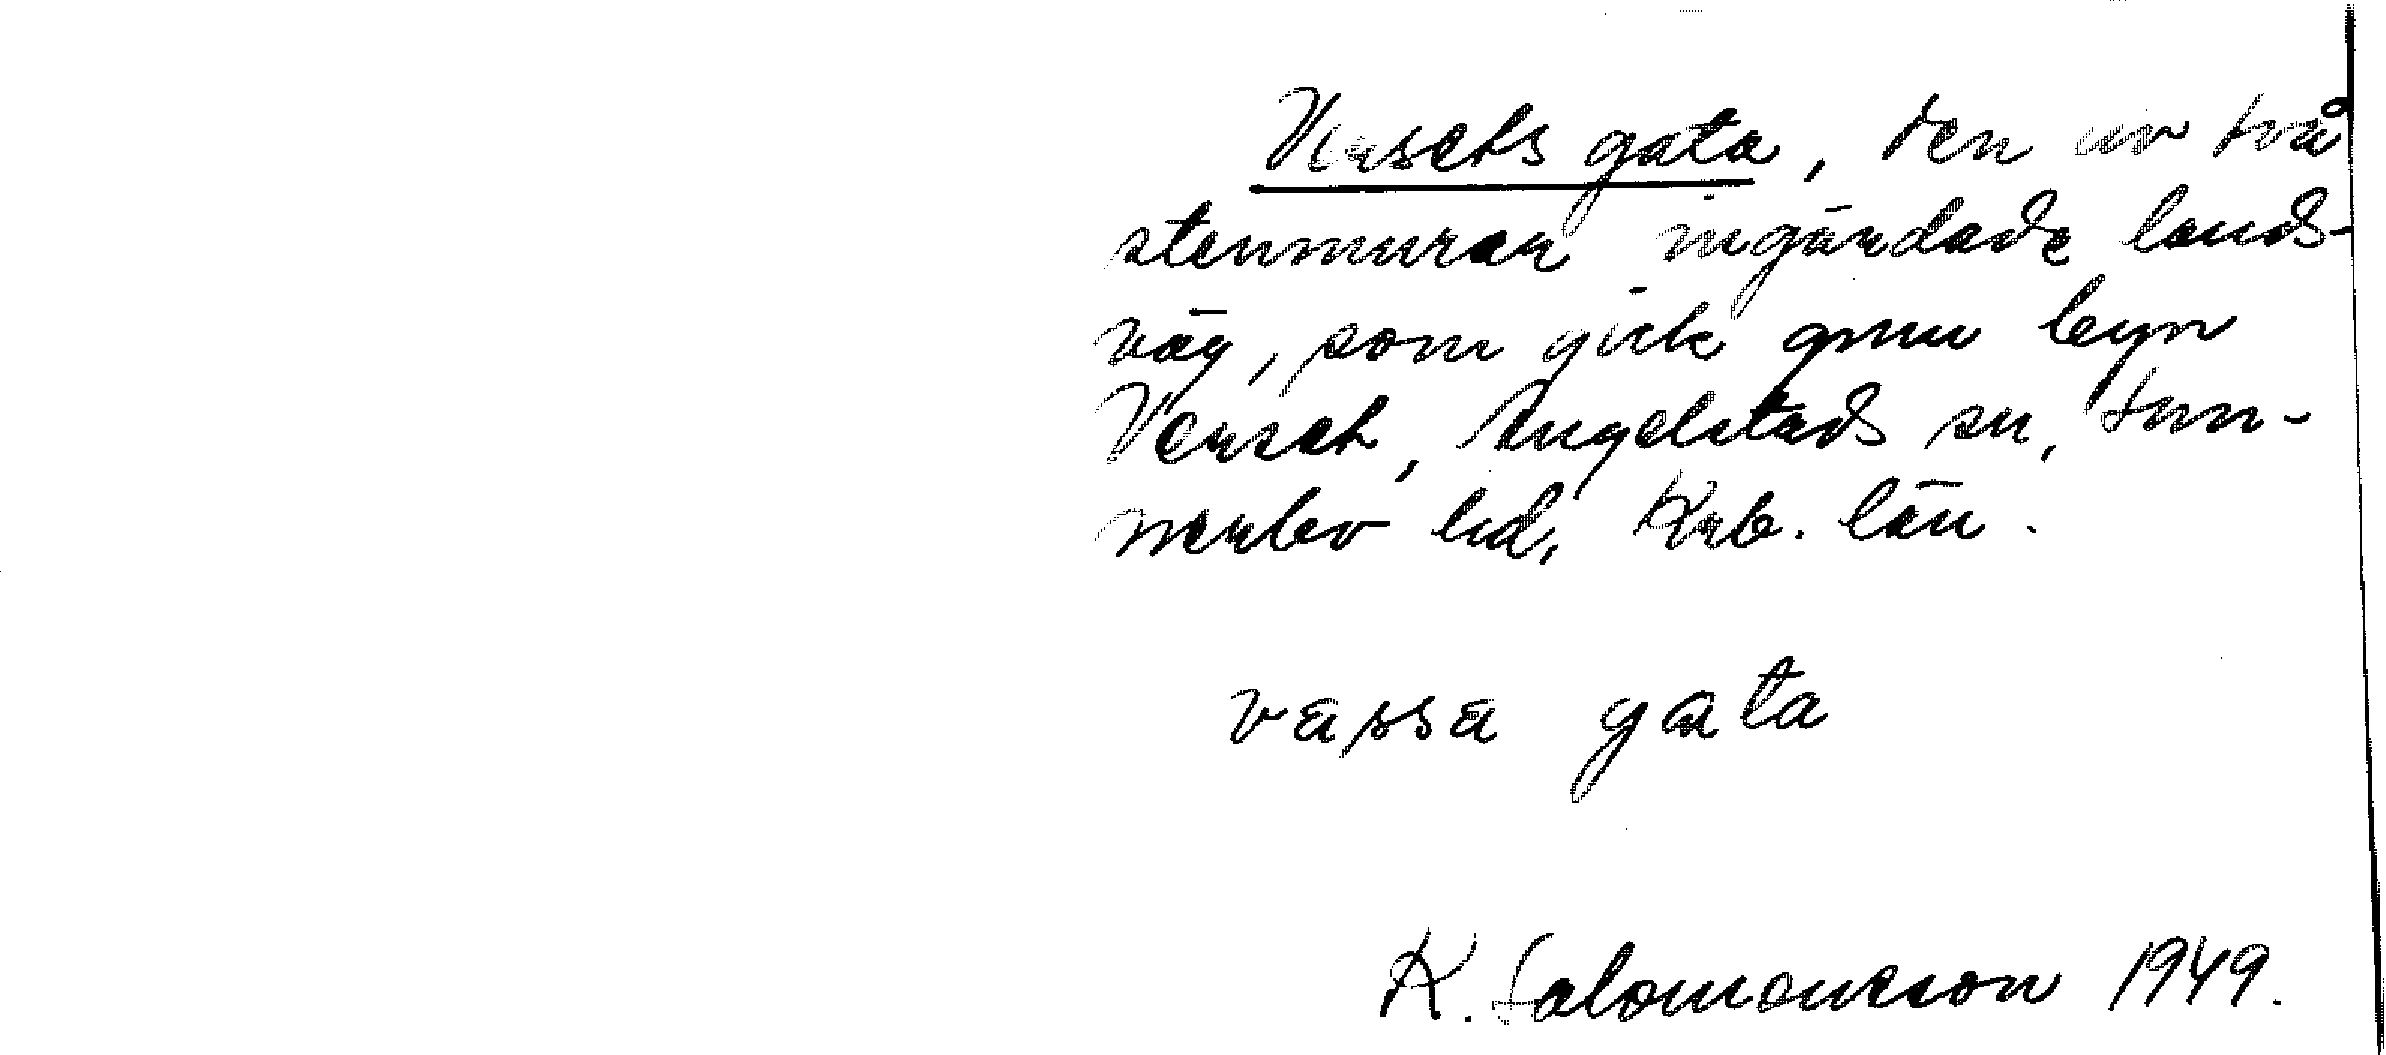 Versets gata, den av två
stenmurar ingärdade lands-
väg, som gick gnm byn
Verset, Angelstads sn, Sun-
nerbo hd, Krb. län.
vassa gata
K. Salomonsson 1949.